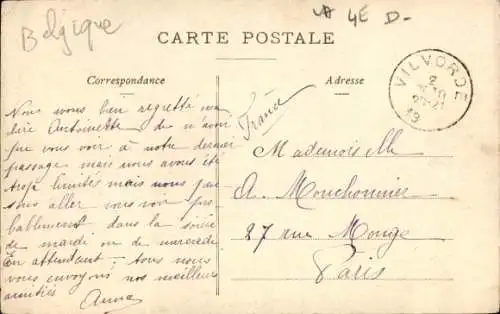 Belgique
4E D-
CARTE POSTALE
Correspondance
Adresse
VILVORDE
2
X 10
20-21
13
France
Nous avons bien regretté ma
dire Antoinette de n'avoir
pas vous voir à notre dernier
passage mais nous avons été
trop limités mais nous pensons
aller vous voir pro
bablement dans la soirée
de mardi ou de mercredi
En attendant tous nous
vous envoyons nos meilleurs
amitiés Anna
Mademoiselle
A. Mouchonnier
27 rue Monge
Paris